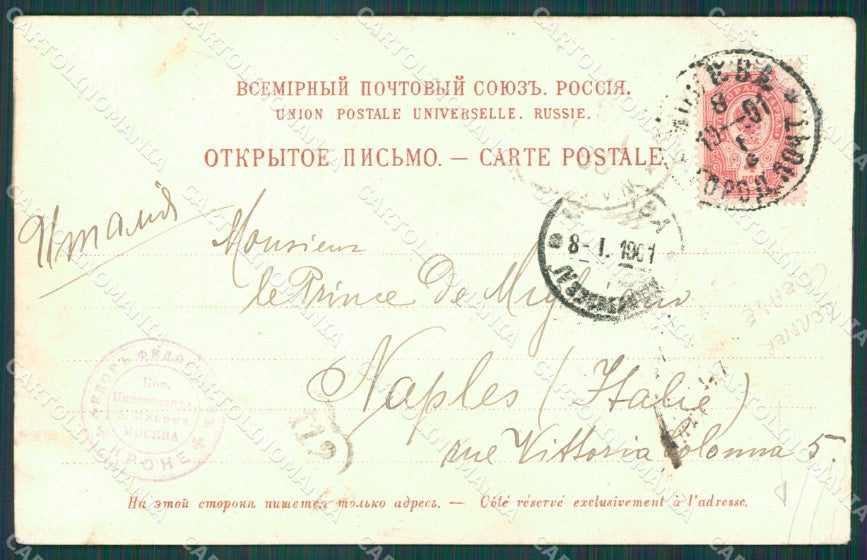 ВСЕМІРНЫЙ ПОЧТОВЫЙ СОЮЗЪ. РОССІЯ.
UNION POSTALE UNIVERSELLE. RUSSIE.
ОТКРЫТОЕ ПИСЬМО. — CARTE POSTALE.
8
10-01
Италія
Monsieur
le Prince De Migliano
8-I.1901
Naples (Italie)
rue Vittoria Colonna 5.
МОСКВА
КРОНЕ
На этой сторонѣ пишется только адресъ. — Côté réservé exclusivement à l'adresse.
CARTOLINOMANIA